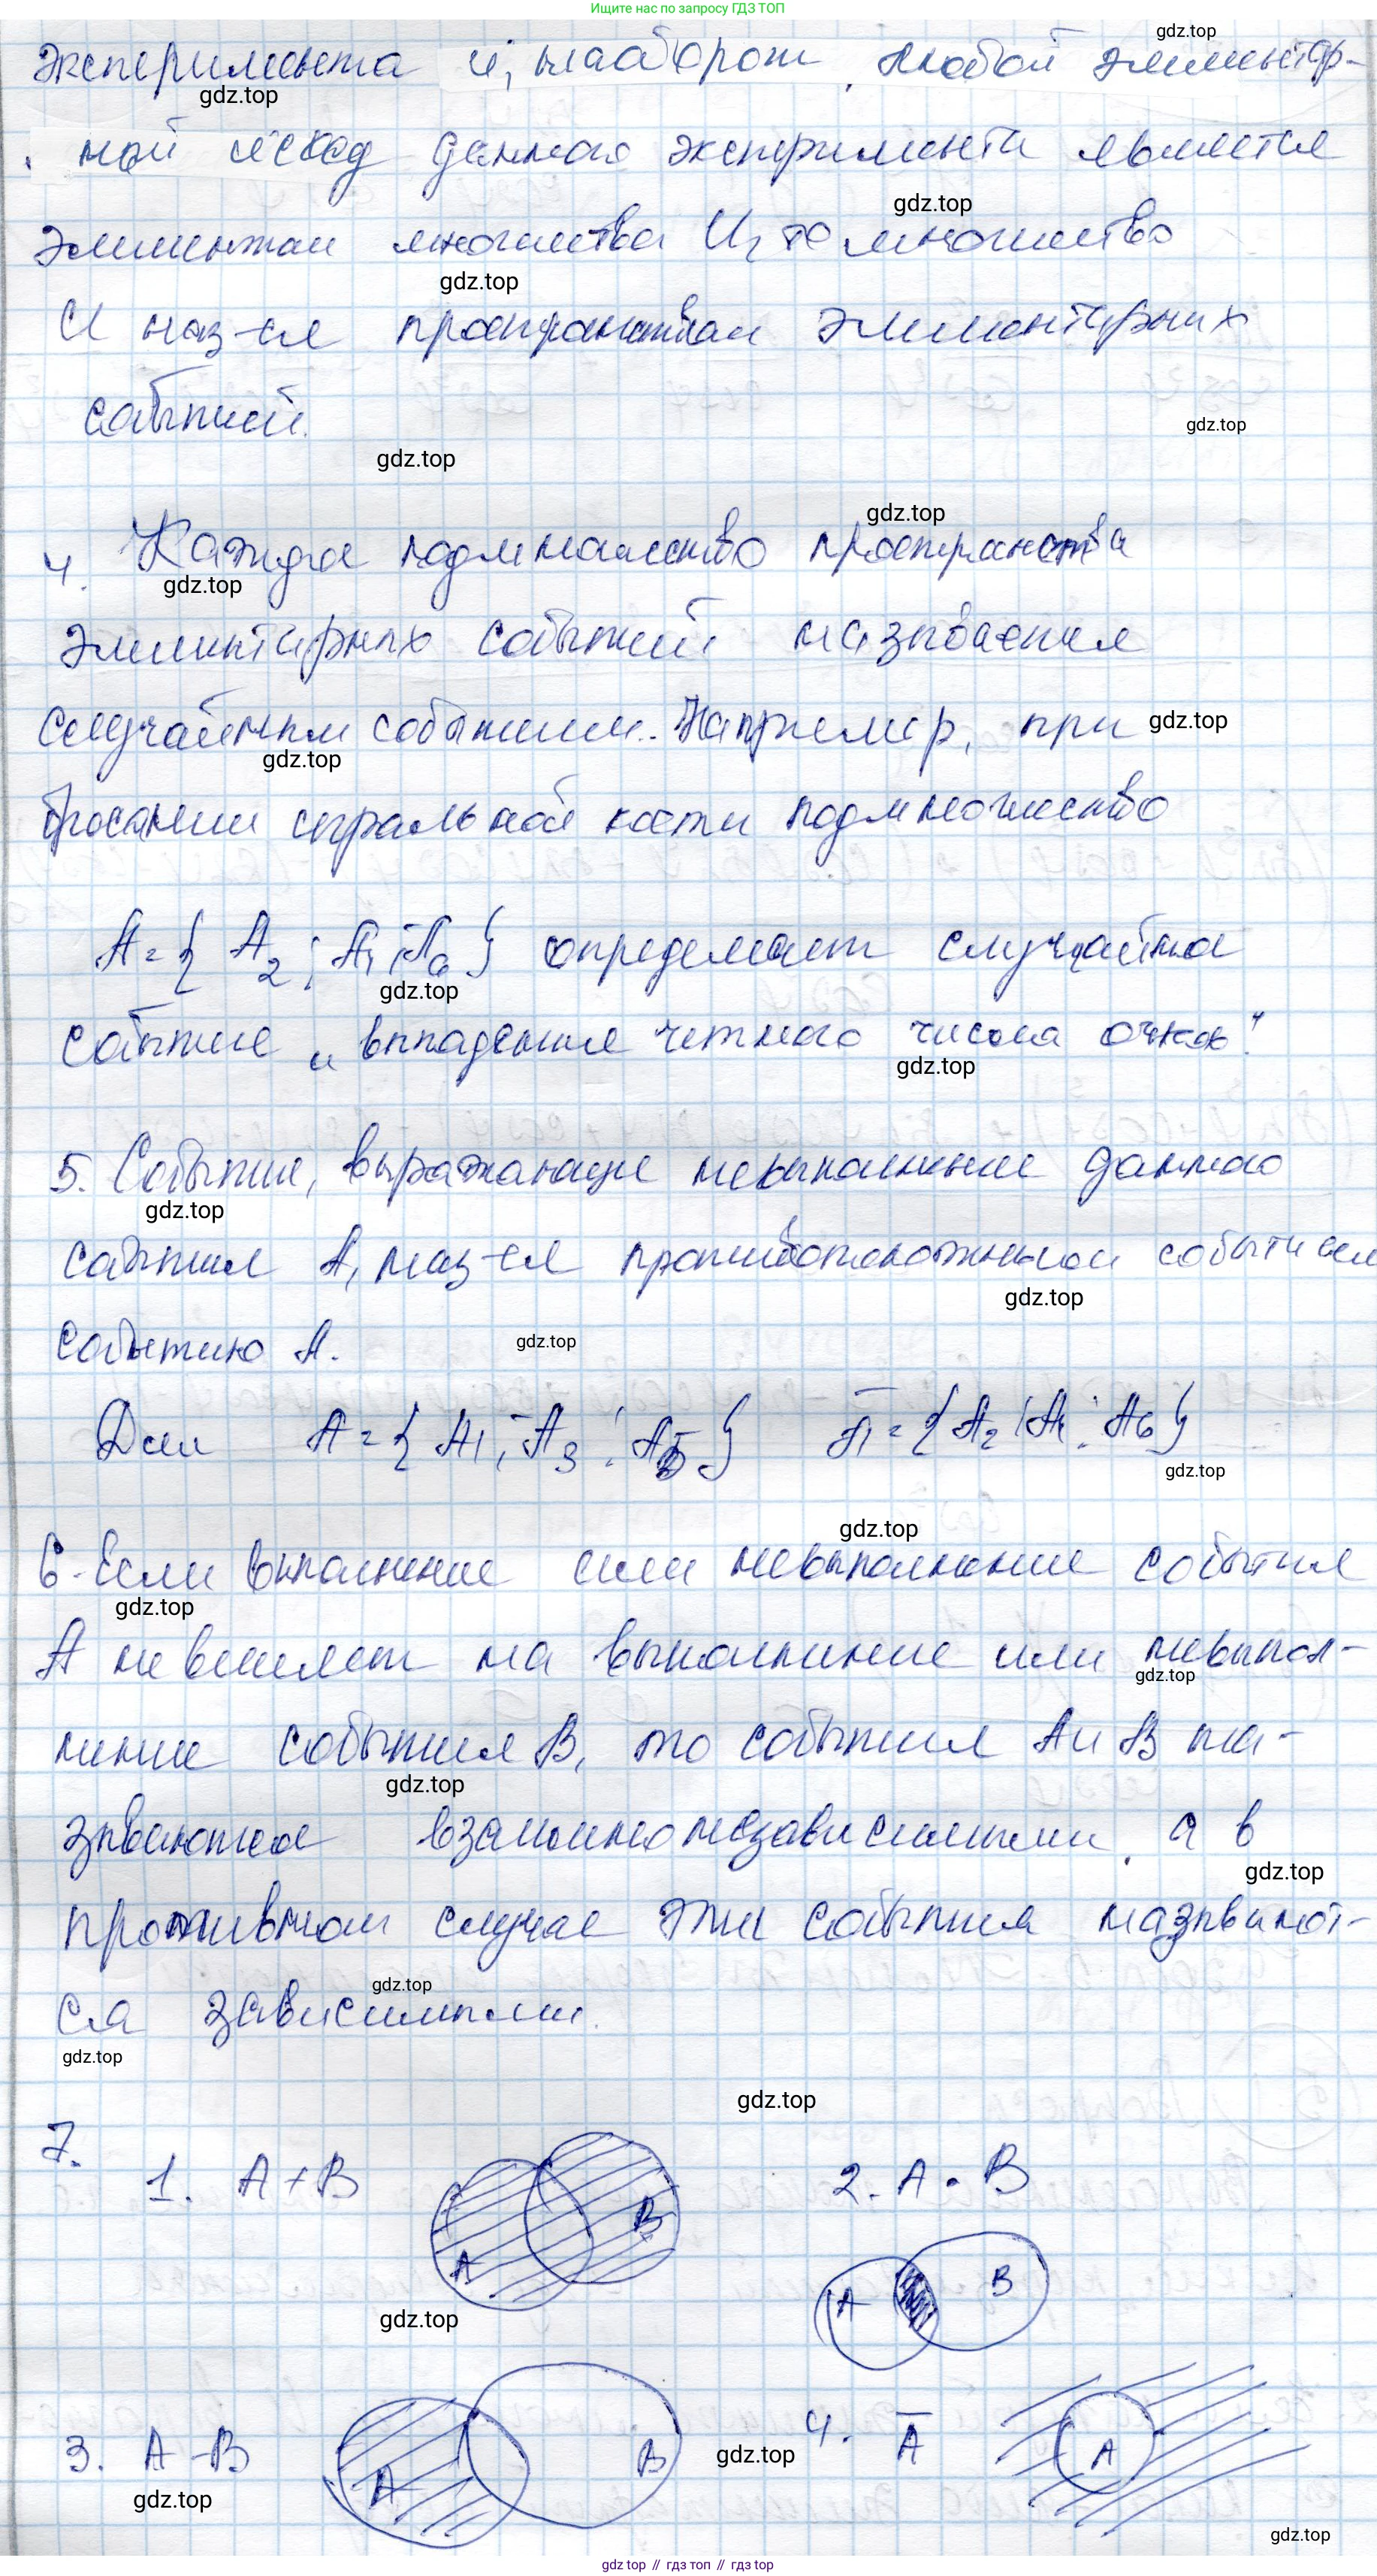 Ищите нас по запросу ГДЗ ТОП
эксперимента и, наоборот, любой элементар-
ный исход данного эксперимента является
элементом множества U, то множество
U наз-ся пространством элементарных
событий.
4. Каждое подмножество пространства
элементарных событий называется
случайным событием. Например, при
бросании игральной кости подмножество
A = { A₂ ; A₄ ; A₆ } определяет случайное
событие „выпадение четного числа очков"
5. Событие, выражающее невыполнение данного
события A, наз-ся противоположным событием
событию A.
Для A = { A₁ ; A₃ ; A₅ } Ā = { A₂ ; A₄ ; A₆ }
6. Если выполнение или невыполнение события
A не влияет на выполнение или невыпол-
нение события B, то события A и B на-
зываются взаимонезависимыми, а в
противном случае эти события называют-
ся зависимыми.
7.
1. A + B
A B
2. A • B
A B
3. A - B
A B
4. Ā
A
gdz.top // гдз топ // gdz.top